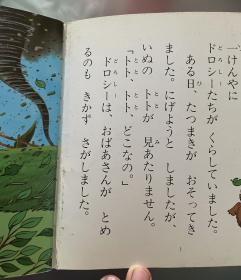 一けんやに
ドロシーたちが くらしていました。
ある日、たつまきが おそってき
ました。にげようと しましたが、
いぬの トトが 見あたりません。
「トト、トト、どこなの。」
ドロシーは、おばあさんが とめ
るのも きかず さがしました。